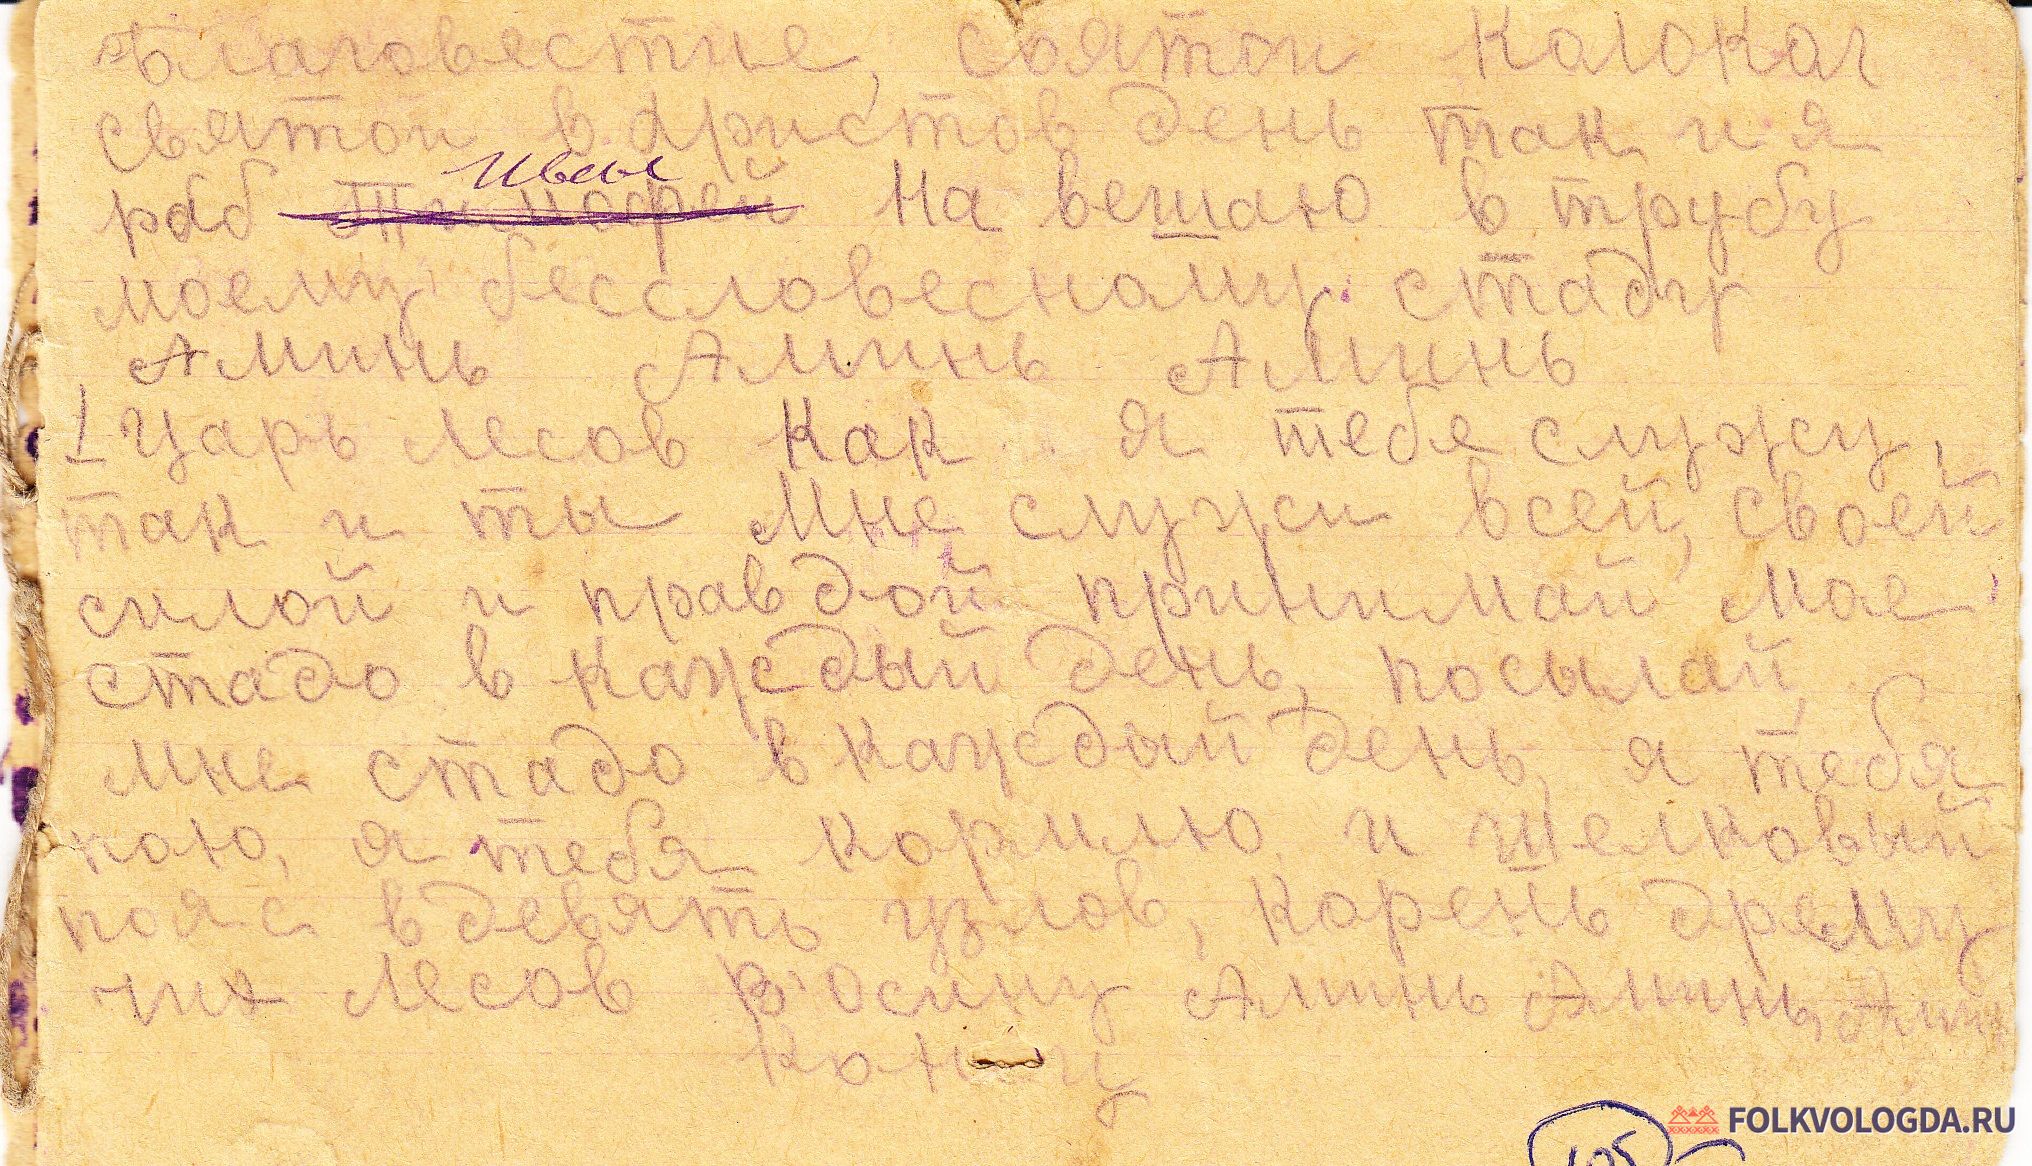 благовестие, святои Колокол
святои в Христов день так и я
Иван
раб Тимофей На вешаю в трубу
моему бессловесному стаду
Аминь Аминь Аминь
1 Царь лесов Как я тебе служу,
так и ты Мне служи всей, своей
силой и правдой принимай мое
стадо в каждый день, посылай,
мне стадо в каждый день, я тебя
пою, я тебя кормлю и шелковый
пояс в девять узлов, Корень дрему
чих лесов Росину Аминь Аминь Амин
Конец
105
FOLKVOLOGDA.RU